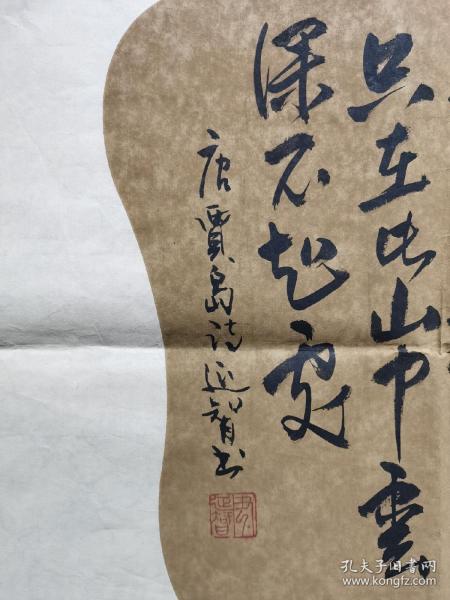 只在此山中雲
深不知處
唐賈島詩延智书
孔夫子旧书网
www.kongfz.com